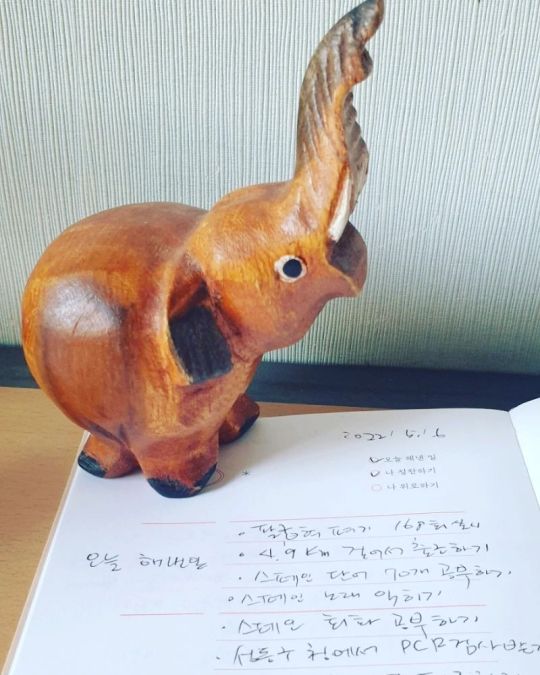 2022. 5. 6
오늘 해낸 일
나 칭찬하기
나 위로하기
오늘 해낸 일
· 팔굽혀펴기 168회 실시
· 4.9 km 걸어서 출근하기
· 스페인 단어 70개 공부하기
· 스페인 노래 익히기
· 스페인 회화 공부하기
· 성동구청에서 PCR검사받